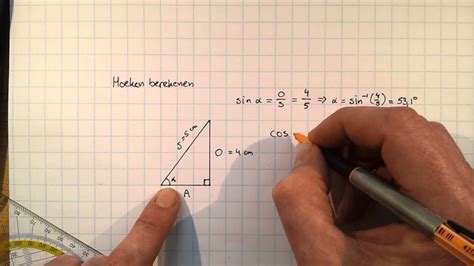 Hoeken berekenen
sin α = O/S = 4/5 ⇒ α = sin⁻¹(4/5) = 53,1°
cos
S = 5 cm
O = 4 cm
α
A